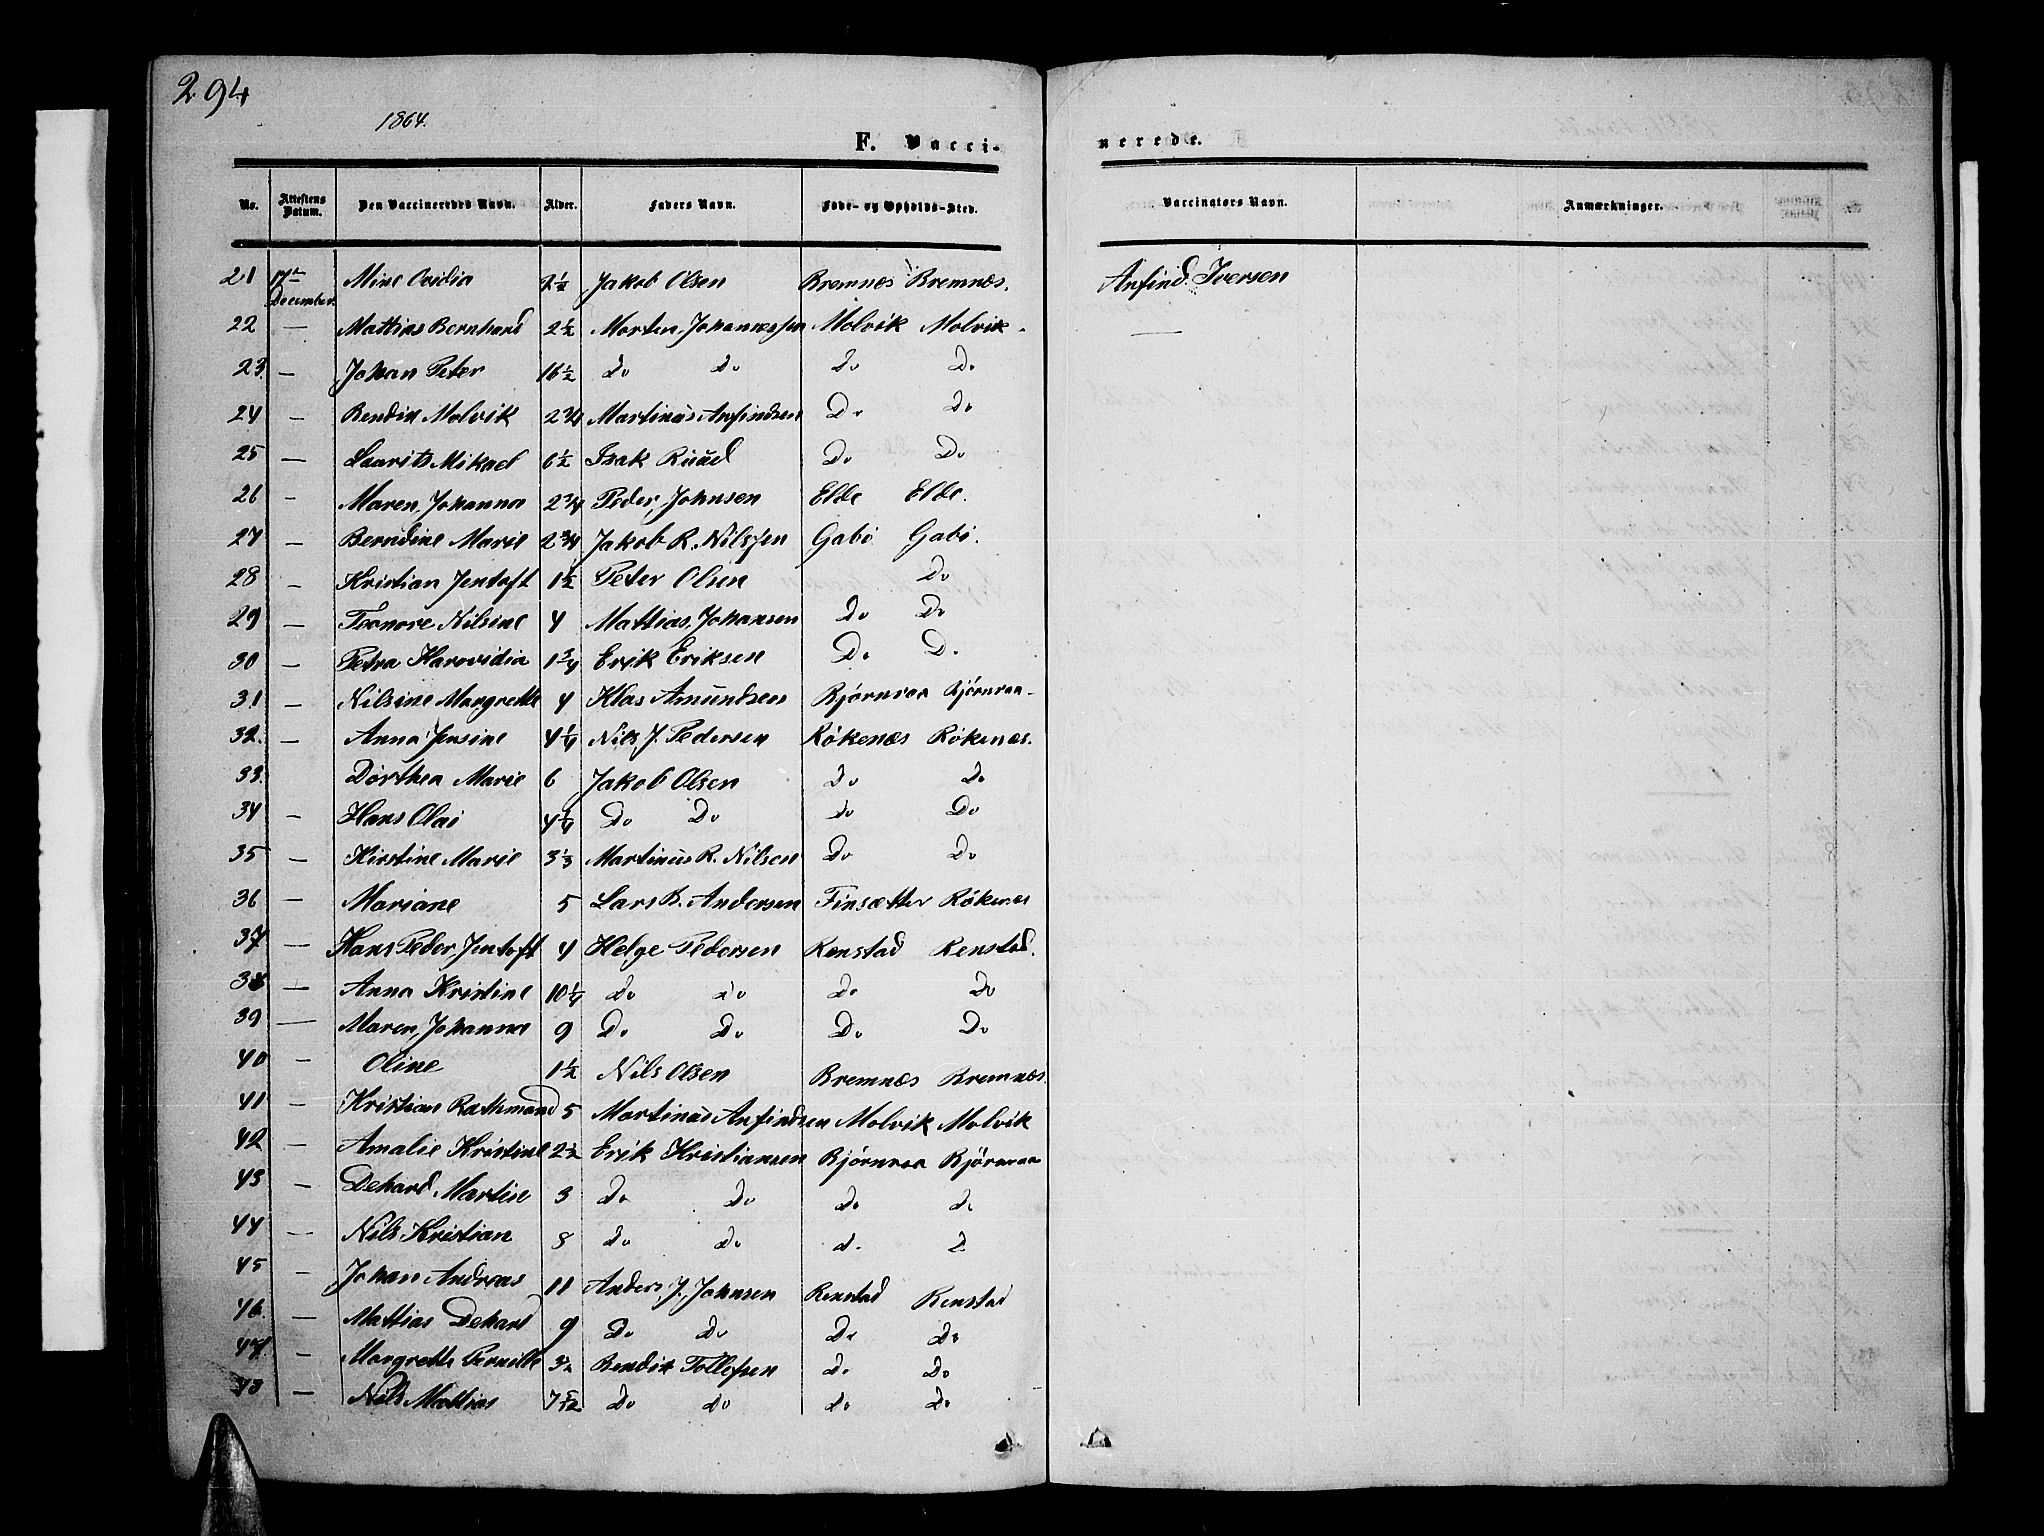 294
1864.
F. Vacci- nerede.
No. Attestens Datum. Den Vaccineredes Navn. Alder. Faders Navn. Føde- og Opholds-Sted. Vaccinators Navn. Anmærkninger.
21 17de December. Mine Ovidia 2½ Jakob Olsen Bremnæs Bremnæs. Anfind Iversen
22 — Mattias Bernhard 2½ Morten Johannessen Molvik Molvik. —
23. — Johan Peter 16½ Do Do Do Do
24 — Bendix Molvik 2¾ Martinus Anfindsen Do Do
25 — Laurits Mikael 6½ Isak Ruud Do Do
26 — Maren Johanna 2¾ Peder Johnsen Elde Elde.
27 — Berndine Marie 2¾ Jakob R. Nilssen Gabø Gabø.
28 — Kristian Jentoft 1½ Peter Olsen Do
29 — Leonore Nilsine 4 Mattias Johansen Do Do
30 — Petra Harovidia 1¾ Erik Eriksen Do Do
31 — Nilsine Margrethe 4 Klas Amundsen Bjørnraa Bjørnraa
32. — Anna Jensine 4¼ Nils J. Pedersen Røkenæs Røkenæs.
33. — Dorthea Marie 6 Jakob Olsen Do Do
34 — Hans Olai 4¼ Do Do Do Do
35 — Kirstine Marie 3⅓ Martinus R. Nilsen Do Do
36 — Mariane 5 Lars B. Andersen Finsætter Røkenæs
37 — Hans Peder Jentoft 4 Helge Pedersen Renstad Renstad.
38 — Anna Kristine 10¼ Do Do Do Do
39 — Maren Johanna 9 Do Do Do Do
40 — Oline 1½ Nils Olsen Bremnæs Bremnæs.
41 — Kristian Rathmand 5 Martinus Anfindsen Molvik Molvik
42 — Amalie Kristine 2½ Erik Kristiansen Bjørnraa Bjørnraa
43 — Dehard Martin 3 Do Do Do Do
44 — Nils Kristian 8 Do Do Do Do
45 — Johan Andreas 11 Anders J. Johnsen Renstad Renstad
46. — Mattias Dehard 9 Do Do Do Do
47 — Margrethe Pernille 3½ Bendix Tollefsen Do Do
48 — Nils Mattias 7 5/12 Do Do Do Do